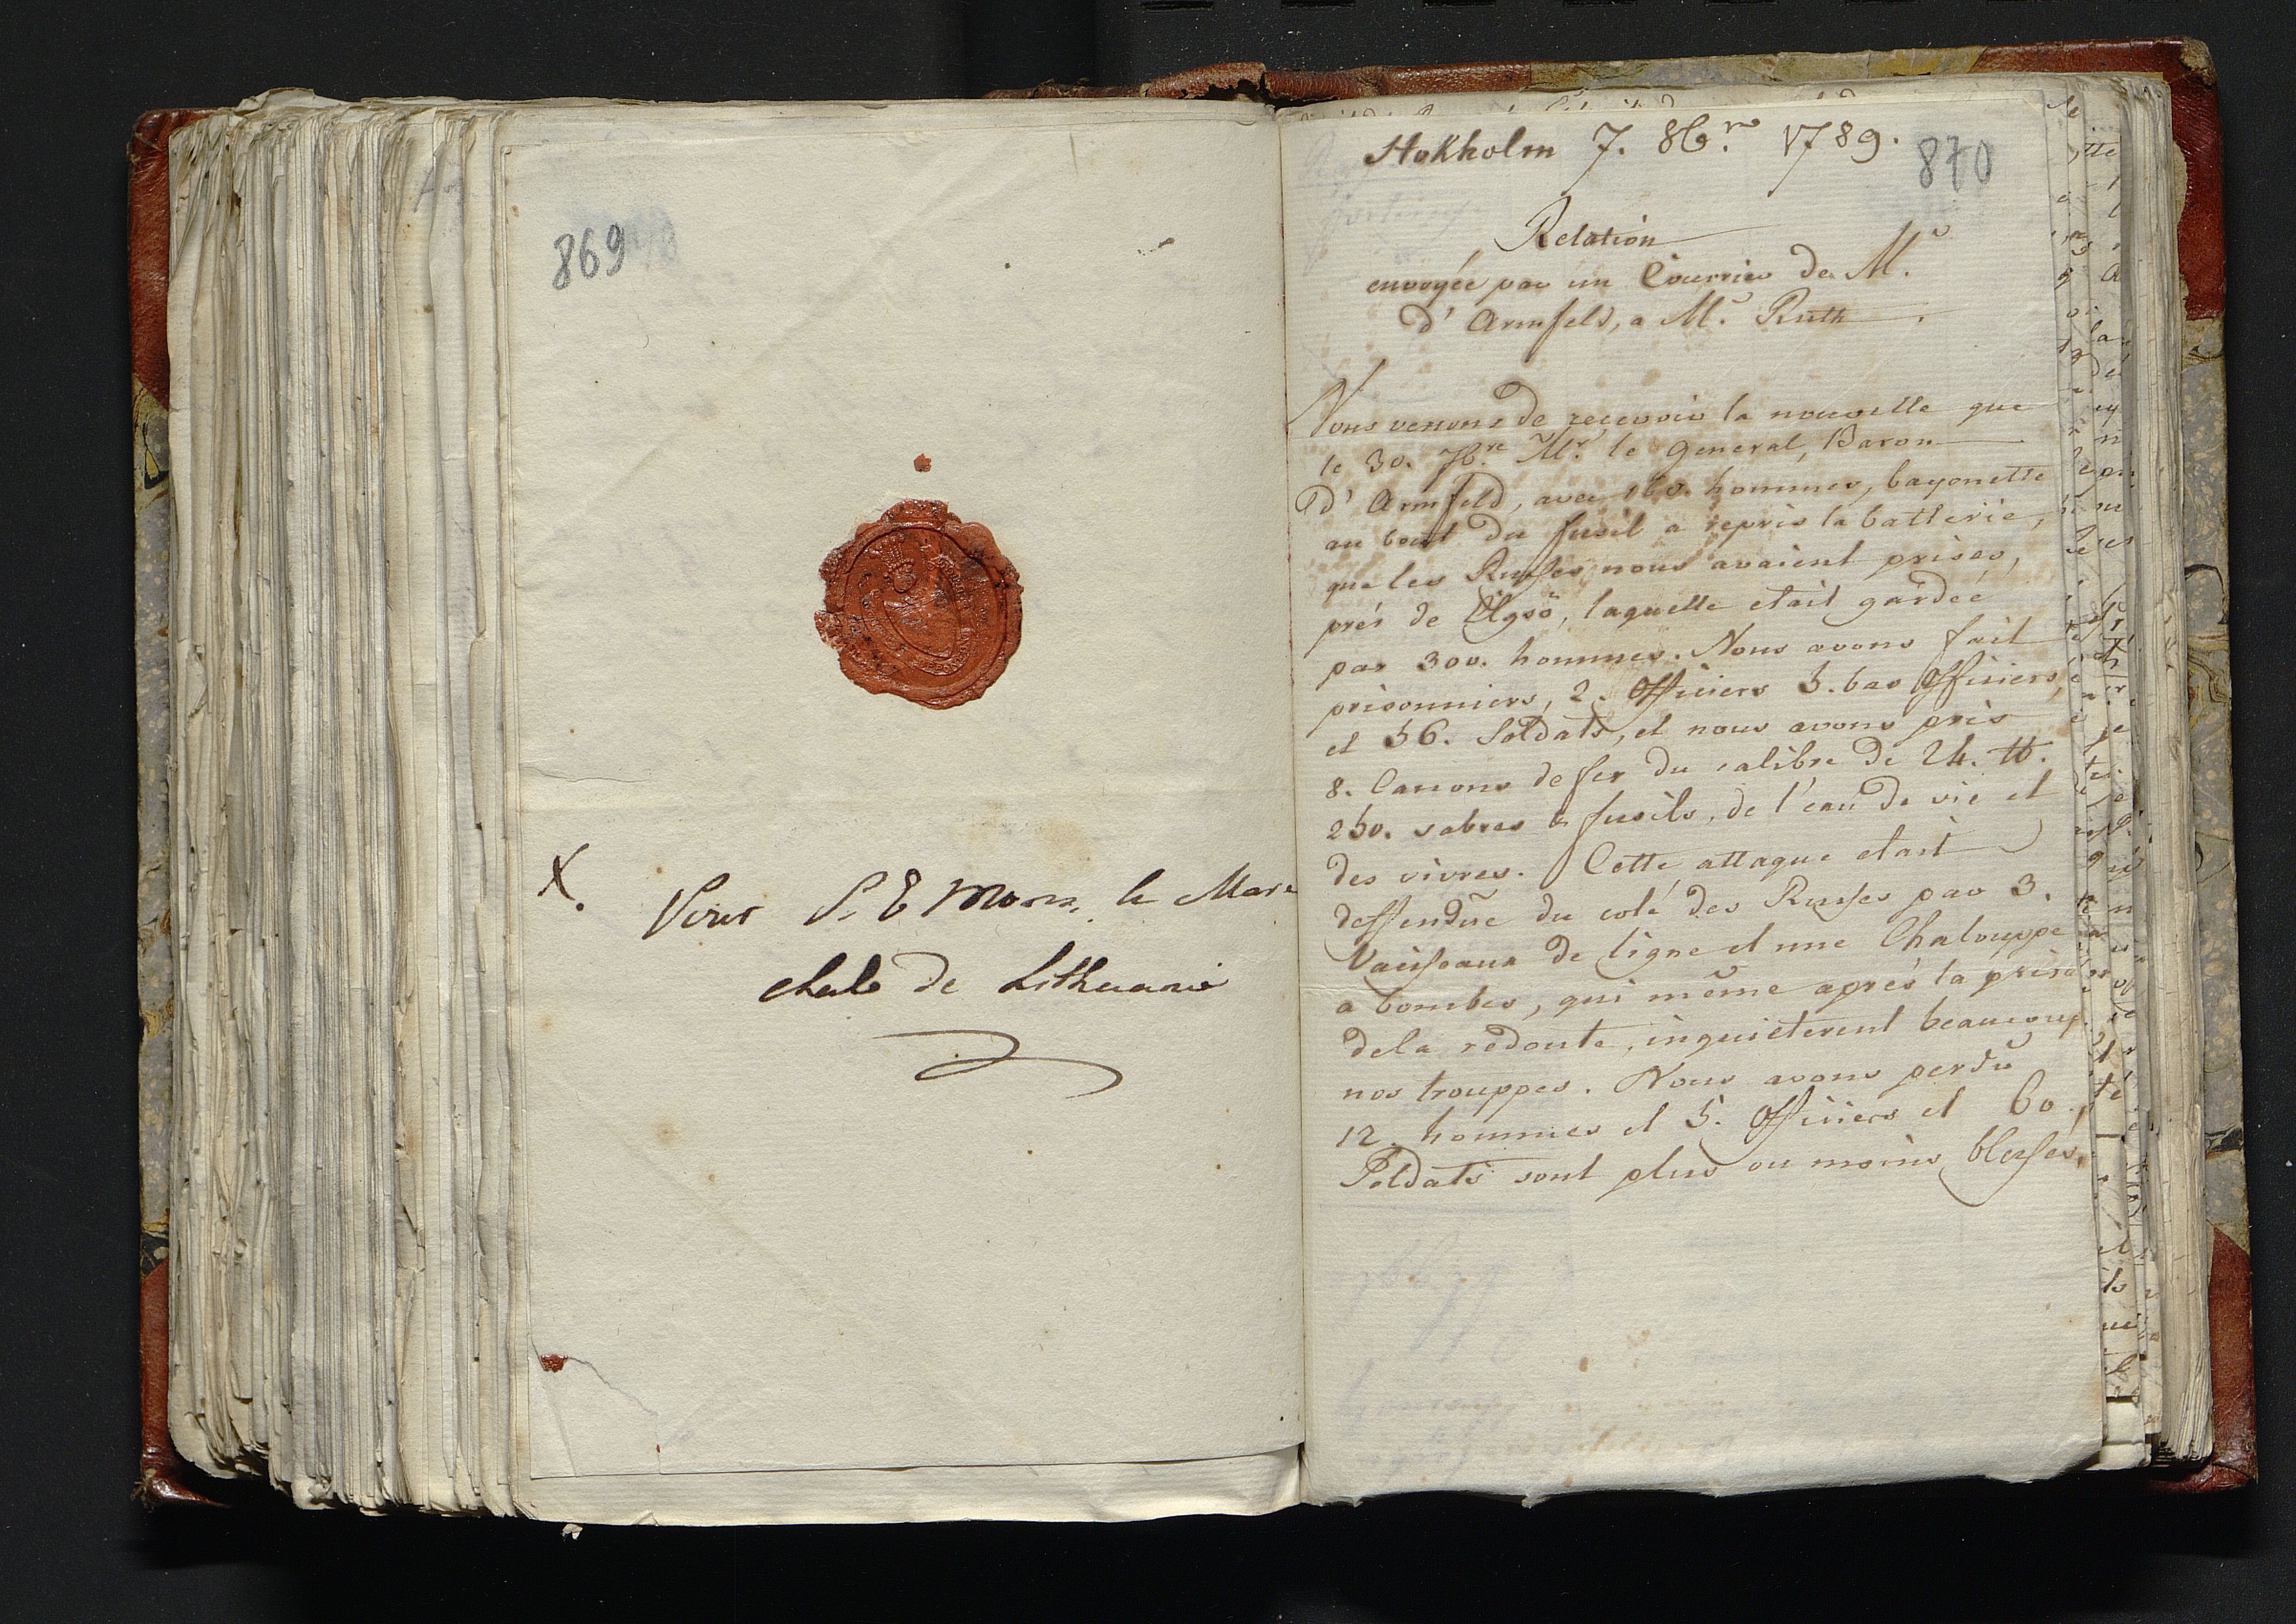 869
X.
Pour S. E Mons. le Mare
chale de Lithuanie
870
Stokholm 7. 8b.re 1789.
Relation
envoyée par un Courrier de M.r
d'Armfeld, a M.r Ruth.
Nous venons de recevoir la nouvelle que
le 30. 7b.re M.r le General, Baron
d'Armfeld, avec 160. hommes, bayonette
au bout du fusil a repris la batterie,
que les Russes nous avaient prises,
prés de Elgsö, laquelle etait gardeé
par 300. hommes. Nous avons fait
prisonniers, 2. Officiers 5. bas Officiers,
et 56. Soldats, et nous avons pris
8. Canons de fer du calibre de 24. ℔.
250. sabres & fusils, de l'eau de vie et
des vivres. Cette attaque etait
deffendüe du coté des Russes par 3.
Vaisseaux de ligne et une Chalouppe
a bombes, qui même aprés la prise
dela redoute, inquieterent beaucoup
nos trouppes. Nous avons perdu
12. hommes et 5. Officiers et 60.
Soldats sont plus ou moins blessés.